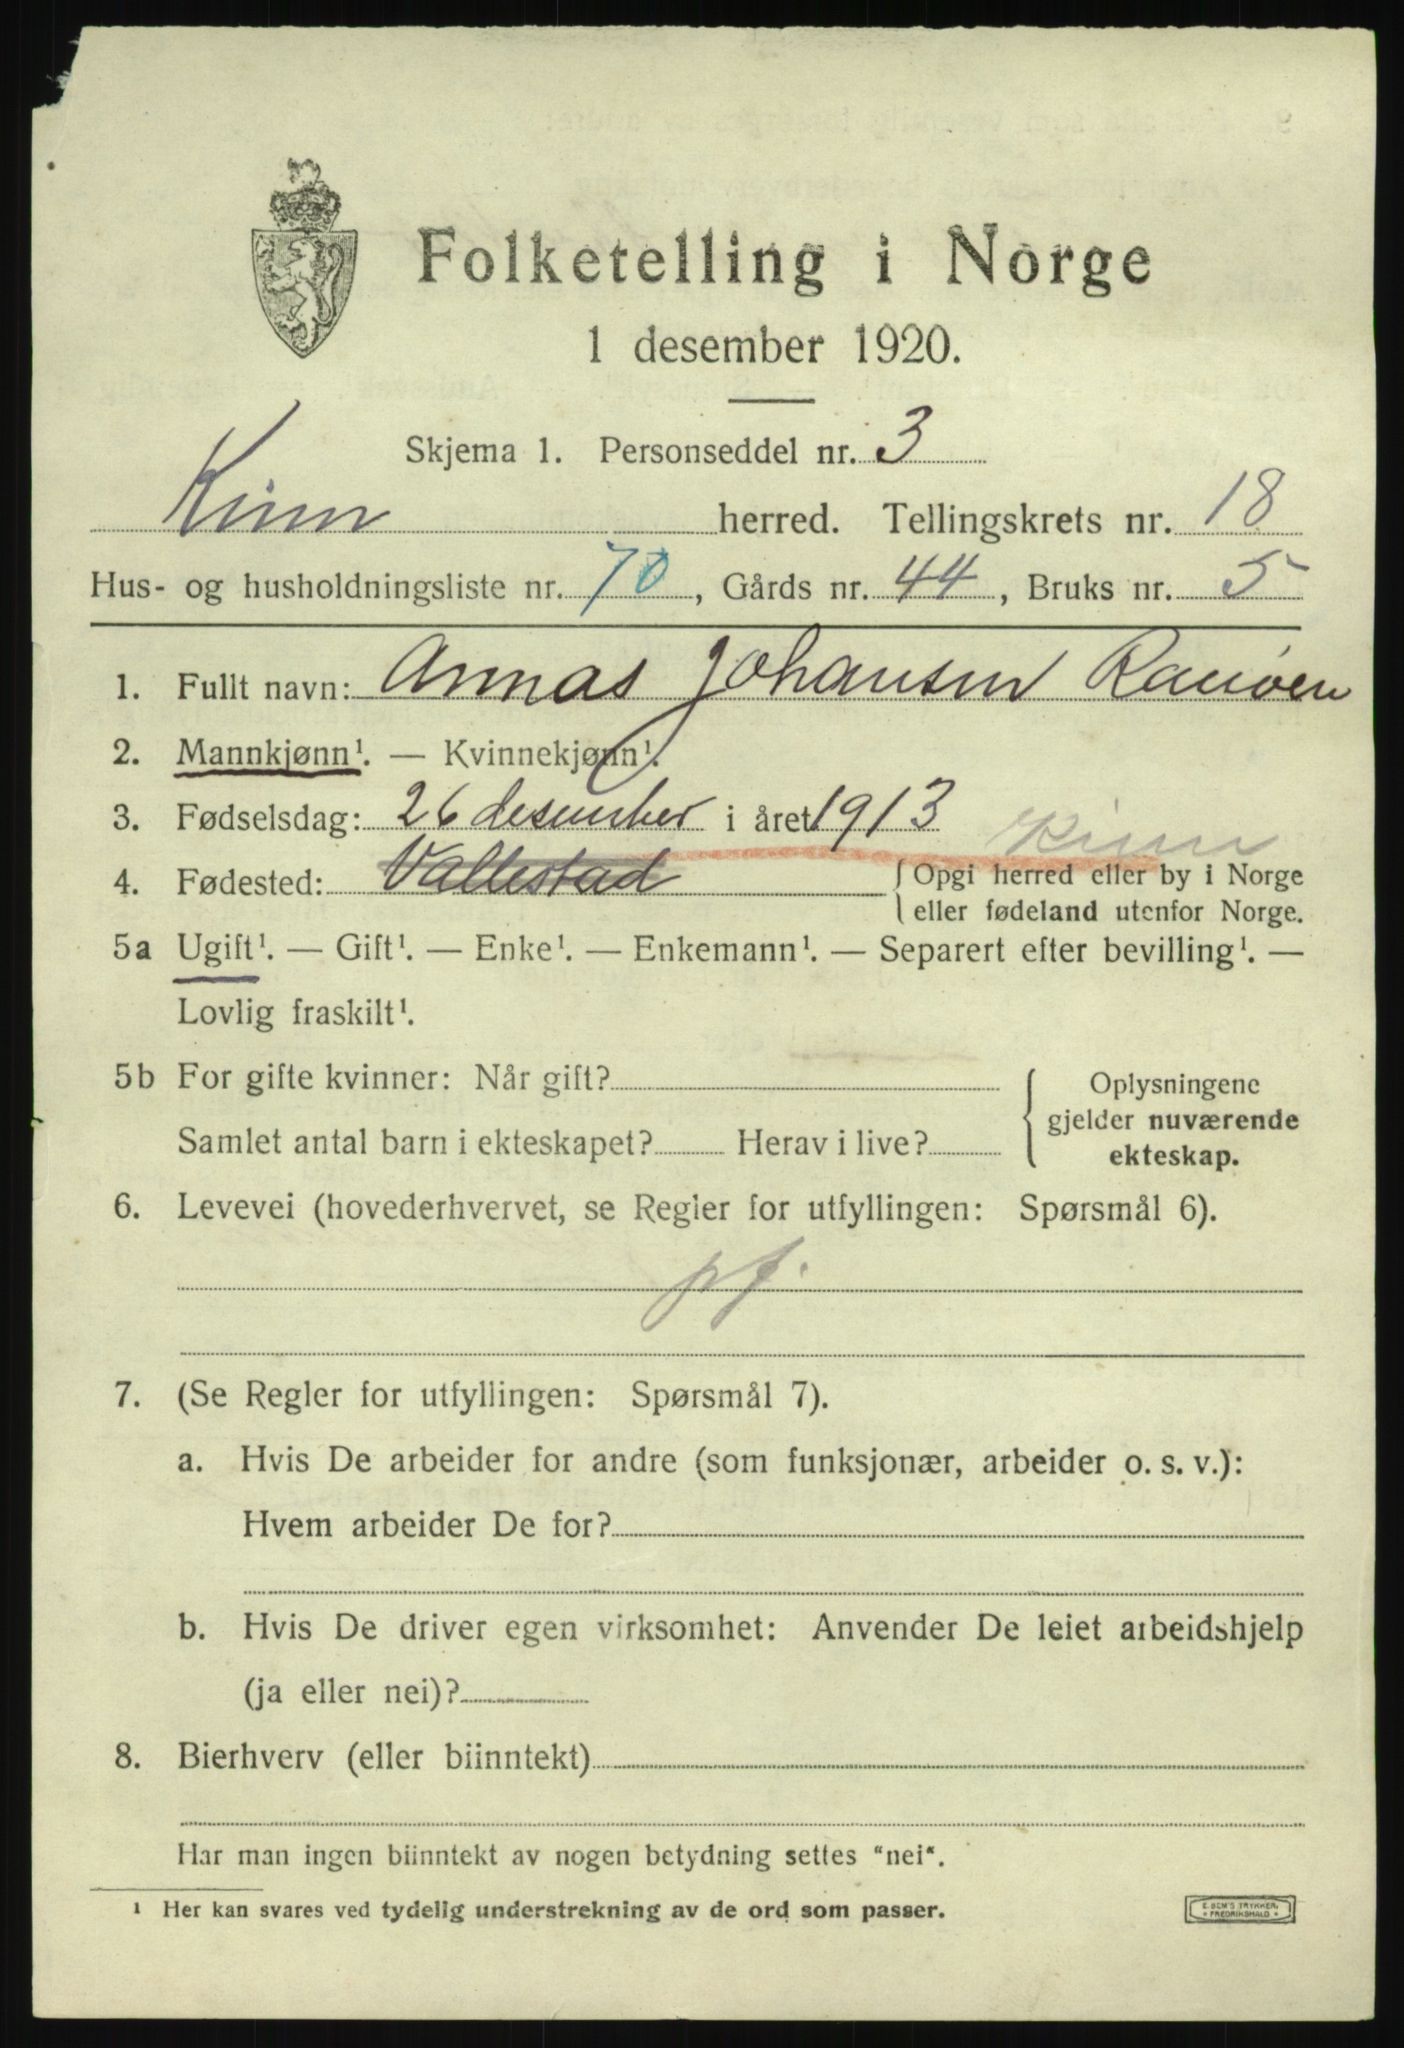 Folketelling i Norge
1 desember 1920.
Skjema 1. Personseddel nr. 3
Kinn herred. Tellingskrets nr. 18
Hus- og husholdningsliste nr. 70, Gårds nr. 44, Bruks nr. 5
1. Fullt navn: Annas Johansen Ranøen
2. Mannkjønn¹. — Kvinnekjønn¹.
3. Fødselsdag: 26 desember i året 1913
Kinn
4. Fødested: Vallestad { Opgi herred eller by i Norge
eller fødeland utenfor Norge.
5a Ugift¹. — Gift¹. — Enke¹. — Enkemann¹. — Separert efter bevilling¹. —
Lovlig fraskilt¹.
5b For gifte kvinner: Når gift? Oplysningene
gjelder nuværende
Samlet antal barn i ekteskapet? Herav i live? ekteskap.
6. Levevei (hovederhvervet, se Regler for utfyllingen: Spørsmål 6).
pf.
7. (Se Regler for utfyllingen: Spørsmål 7).
a. Hvis De arbeider for andre (som funksjonær, arbeider o. s. v.):
Hvem arbeider De for?
b. Hvis De driver egen virksomhet: Anvender De leiet arbeidshjelp
(ja eller nei)?
8. Bierhverv (eller biinntekt)
Har man ingen biinntekt av nogen betydning settes "nei".
¹ Her kan svares ved tydelig understrekning av de ord som passer.
E. SEM'S TRYKKERI,
* FREDRIKSHALD *